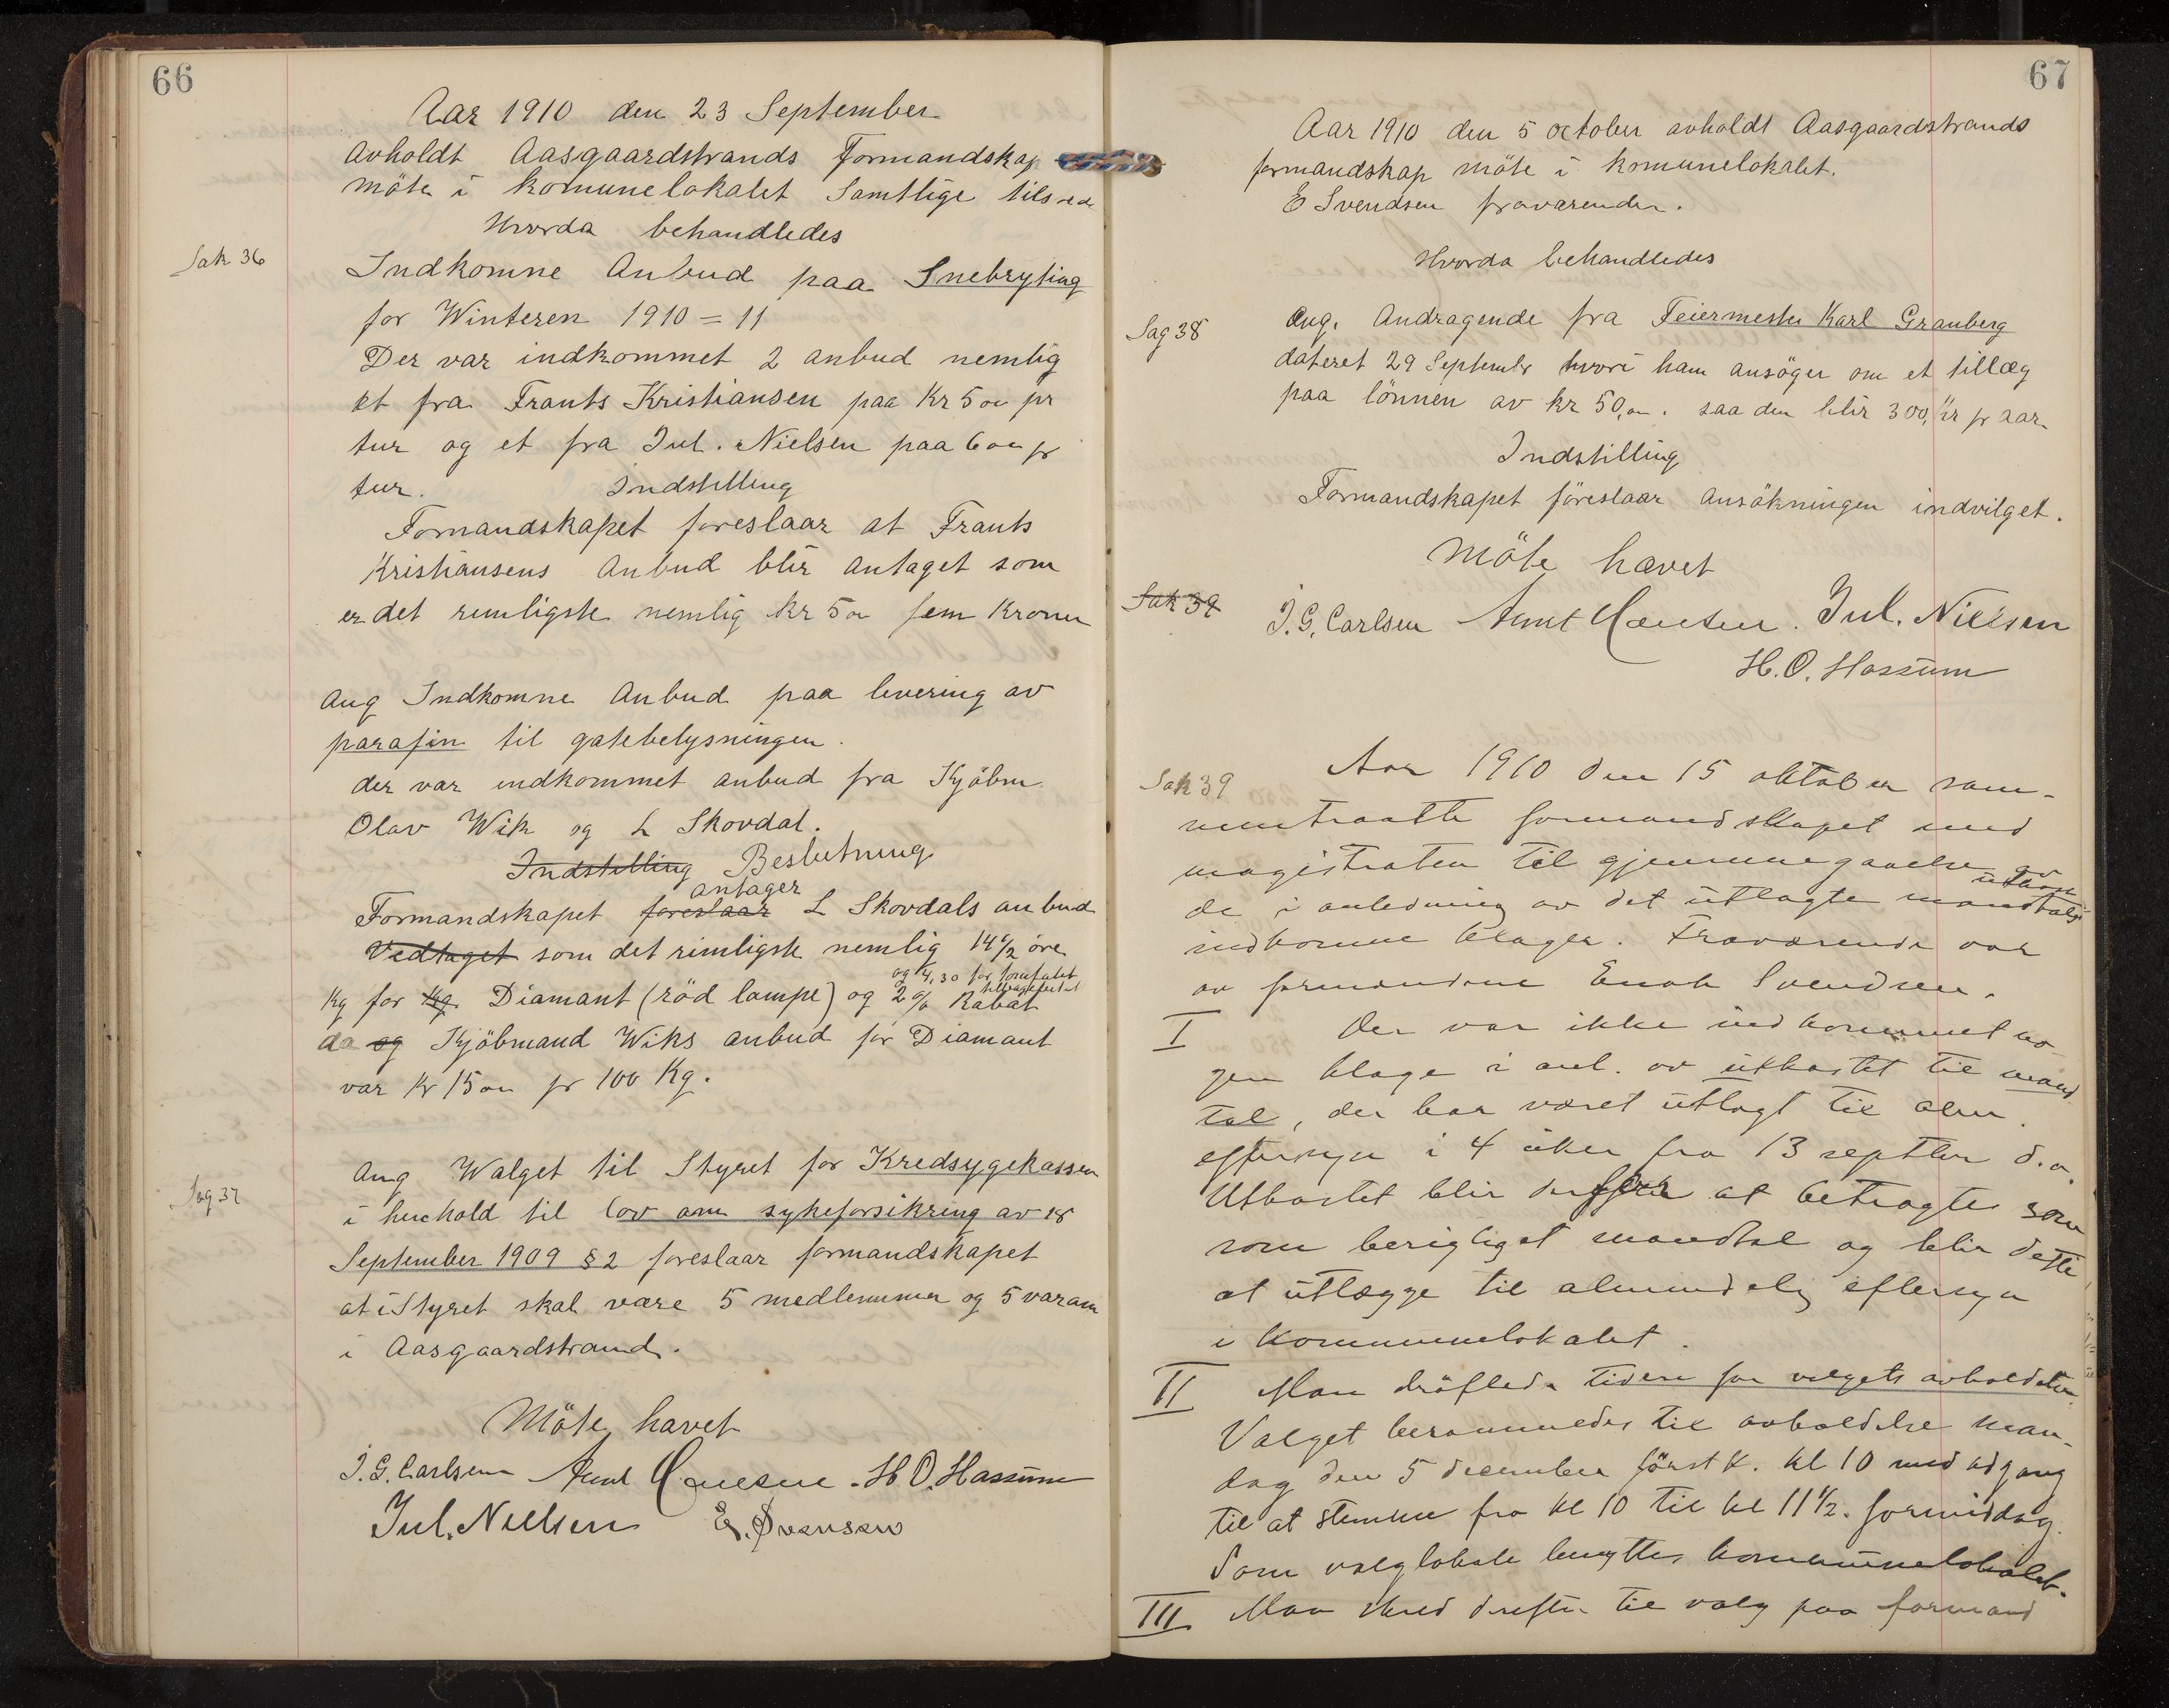 66
Aar 1910 den 23 September
avholdt Aasgaardstrands Formandskap
möte i komunelokalet Samtlige tilsted
Hvorda behandledes
Sak 36
Indkomne Anbud paa Snebryting
for Winteren 1910 = 11
Der var indkommet 2 anbud nemlig
et fra Frants Kristiansen paa Kr 5 00 pr
tur og et fra Jul. Nielsen paa 6 00 pr
tur. Indstilling
Formandskapet foreslaar at Frants
Kristiansens Anbud blir antaget som
er det rimligste nemlig kr 5 00 fem Kroner
Ang Indkomne Anbud paa levering av
parafin til gatebelysningen.
der var indkommet anbud fra Kjöbm
Olav Wik og L Skovdal.
Indstilling Beslutning
antager
Formandskapet foreslaar L Skovdals anbud
Vedtaget som det rimligste nemlig 14 1/2 öre
og 4,30 for forafatet tilbageleveret
Kg for Kg Diamant (röd lampe) og 2 % Rabat
da og Kjöbmand Wiks anbud for Diamant
var Kr 15 00 pr 100 Kg.
Sag 37
Ang Walget til Styret for Kredsygekassen
i henhold til lov om sykeforsikring av 18
September 1909 § 2 foreslaar formandskapet
at i Styret skal være 5 medlemmer og 5 varam
i Aasgaardstrand.
Möte hævet
J. G. Carlsen H. O. Hassum
Jul. Nielsen E. Svensen
67
Aar 1910 den 5 october avholdt Aasgaardstrands
formandskap möte i komunelokalet.
E Svendsen fraværender.
Hvorda behandledes
Sag 38
Ang. Andragende fra Feiermester Karl Granberg
dateret 29 Septembr hvori ham ansöger om et tillæg
paa lönnen av kr 50,00. saa den blir 300, kr pr aar
Indstilling
Formandskapet föreslaar ansökningen indvilget.
Möte hævet
Sak 39
J. G. Carlsen Jul. Nielsen
H. O. Hassum
Sak 39
Aar 1910 den 15 oktober sam-
mentraatte formandskapet med
magistraten til gjennemgaaelse av
utkast
de i anledning av det utlagte mandtals
indkomne klager. Fraværende var
av formændene Enok Svendsen.
I
Der var ikke indkommet no-
gen klage i anl. av utkastet til mand
tal, der har været utlagt til alm.
eftersyn i 4 uker fra 13 septbr d.a.
Utkastet blir derfor at betragte som
som berigtiget mandtal og blir dette
at utlægge til almindelig eftersyn
i kommunelokalet.
II
Man dröftede tiden for valgets avholdelse
Valget berammedes til avholdelse man-
dag den 5 december förstk. kl 10 med adgang
til at stemme fra kl 10 til kl 11 1/2. formiddag.
Som valglokale benyttes kommunelokalet.
III
Man skred derefter til valg paa formand